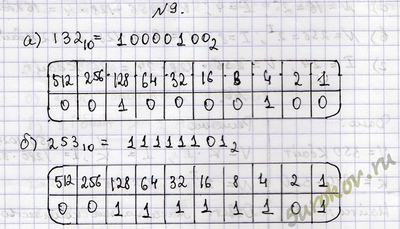 №9.
а) 132₁₀ = 10000100₂
512 256 128 64 32 16 8 4 2 1
0 0 1 0 0 0 0 1 0 0
б) 253₁₀ = 11111101₂
512 256 128 64 32 16 8 4 2 1
0 0 1 1 1 1 1 1 0 1